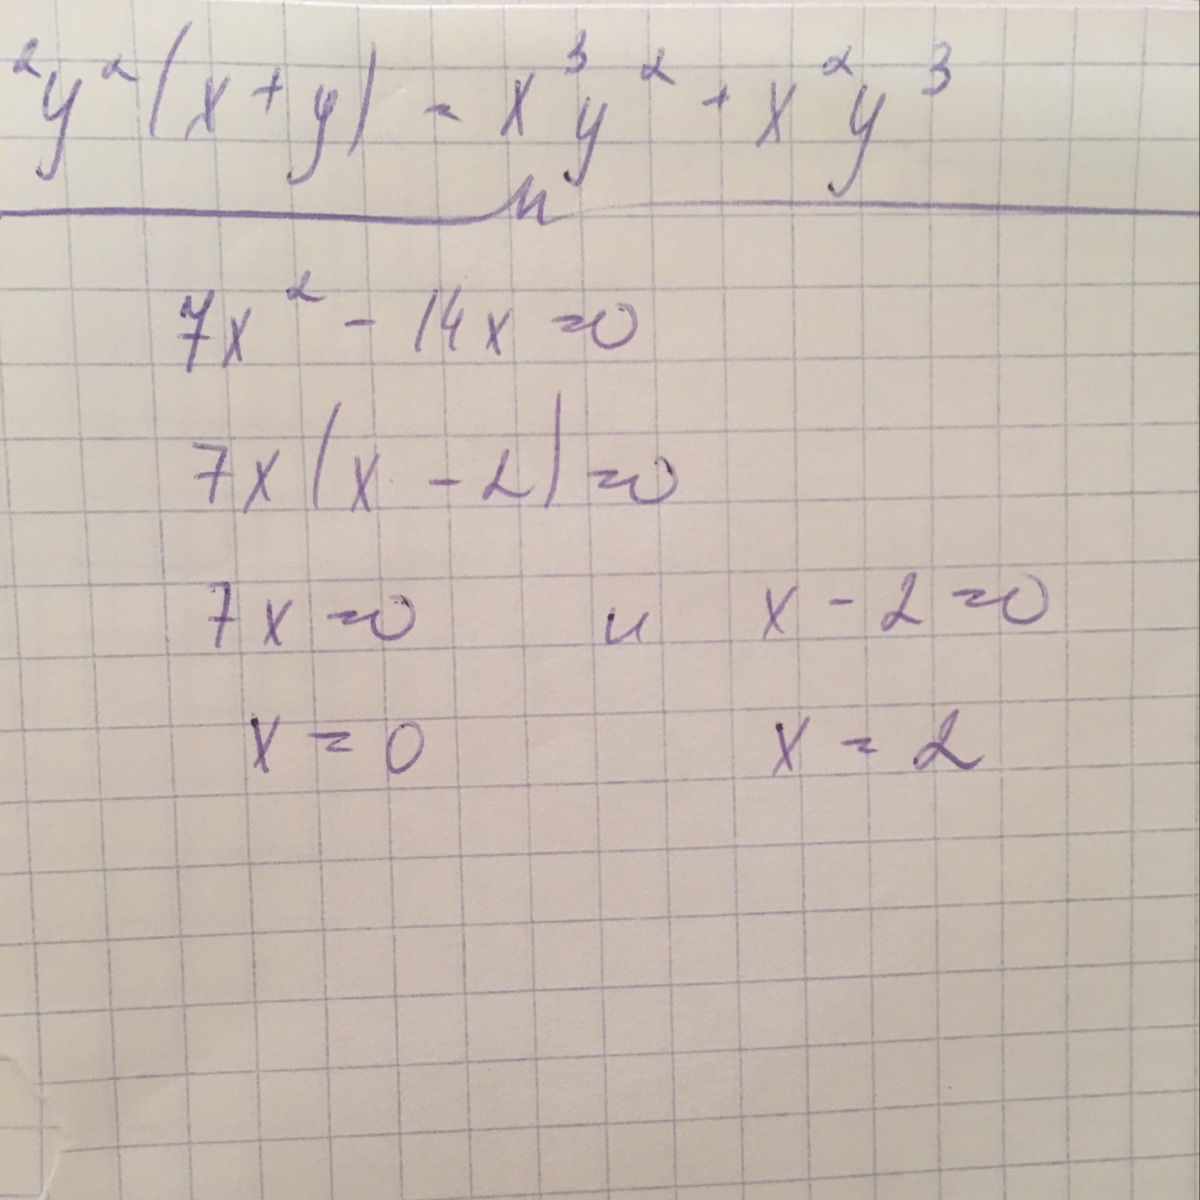 ²y²(x+y) = x³y² + x²y³
и
7x² - 14x = 0
7x(x - 2) = 0
7x = 0 и x - 2 = 0
x = 0 x = 2